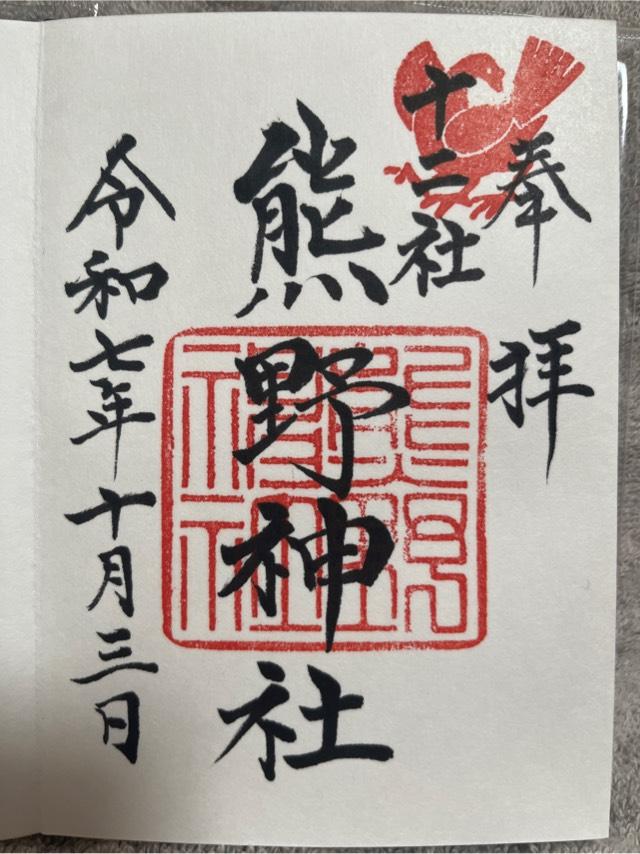 奉拝
十二社
熊野神社
令和七年十月三日
熊野神社